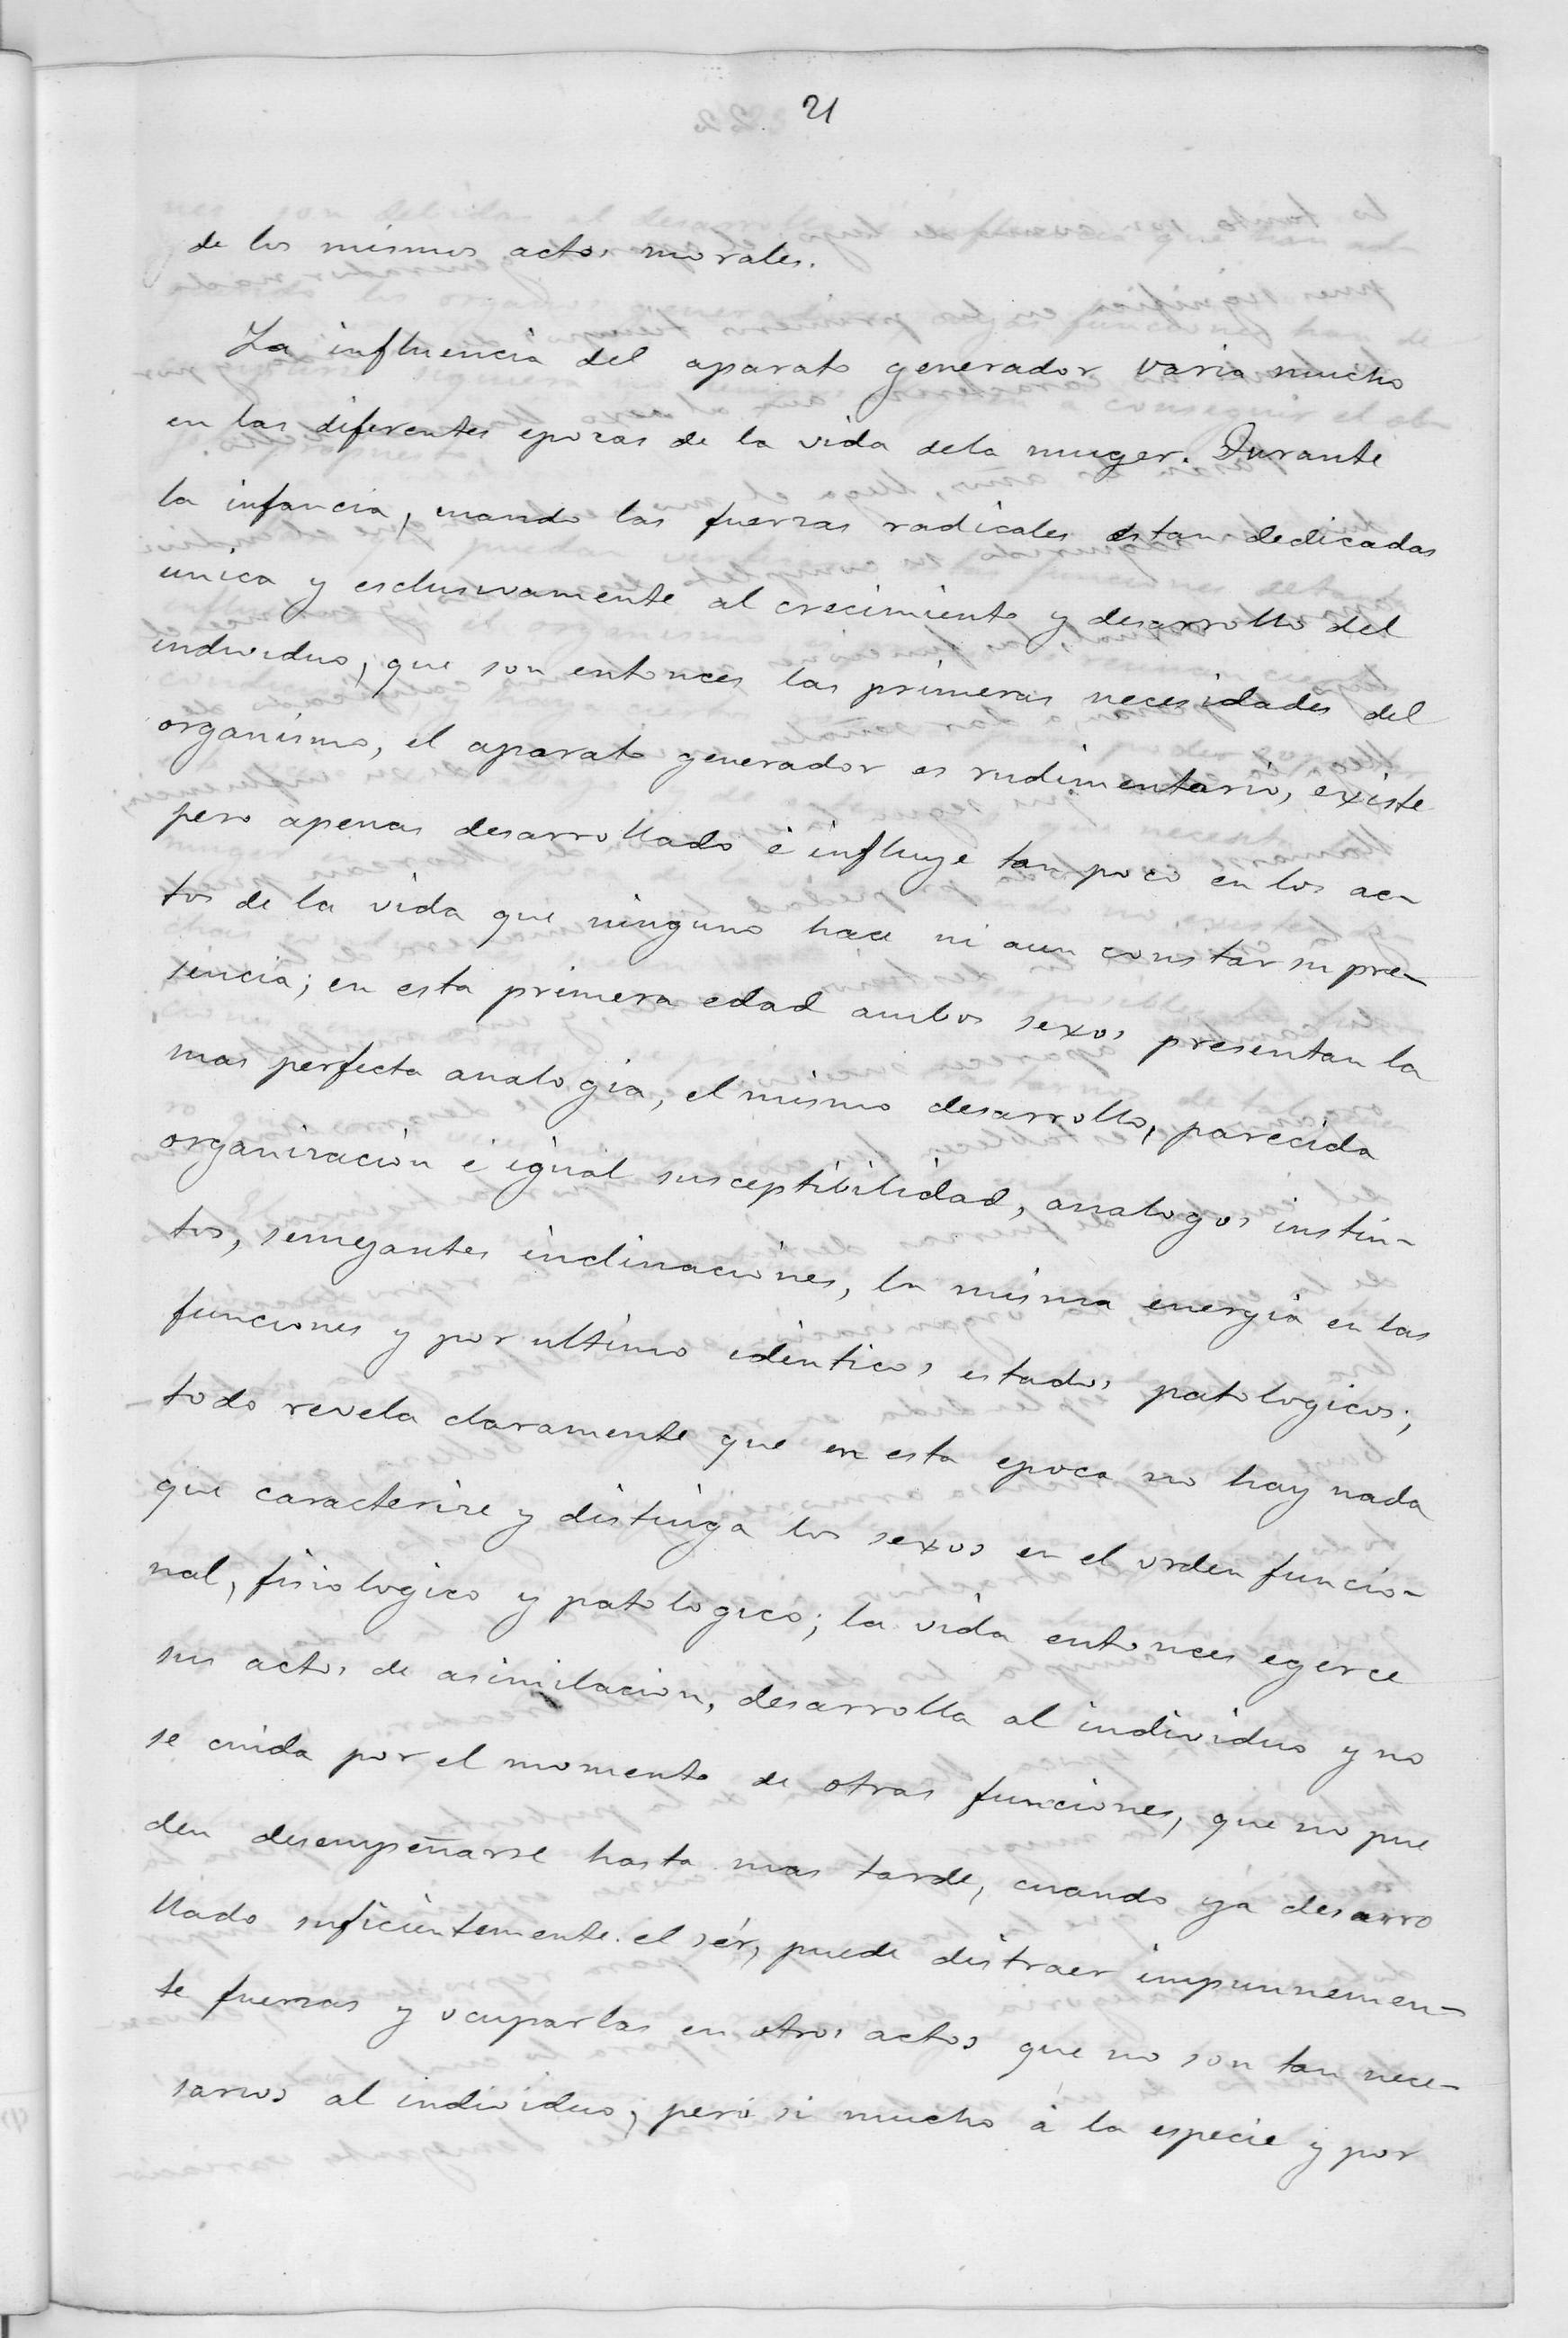 21
de los mismos actos morales.
La influencia del aparato generador varia mucho
en las diferentes epocas de la vida dela muger. Durante
la infancia, cuando las fuerzas radicales estan dedicadas
unica y esclusivamente al crecimiento y desarrollo del
individuo, que son entonces las primeras necesidades del
organismo, el aparato generador es rudimentario, existe
pero apenas desarrollado é influye tan poco en los ac-
tos de la vida que ninguno hace ni aun constar su pre-
sencia; en esta primera edad ambos sexos presentan la
mas perfecta analogia, el mismo desarrollo, parecida
organizacion é igual susceptibilidad, analogos instin-
tos, semejantes inclinaciones, la misma energia en las
funciones y por ultimo identicos estados patologicos;
todo revela claramente que en esta epoca no hay nada
que caracterize y distinga los sexos en el orden funcio-
nal, fisiologico y patologico; la vida entonces egerce
sus actos de asimilacion, desarrolla al individuo y no
se cuida por el momento de otras funciones, que no pue
den desempeñarse hasta mas tarde, cuando ya desarro
llado suficientemente el sér, puede distraer impunnemen-
te fuerzas y ocuparlas en otros actos que no son tan nece-
sarios al individuo, pero si mucho á la especie y por